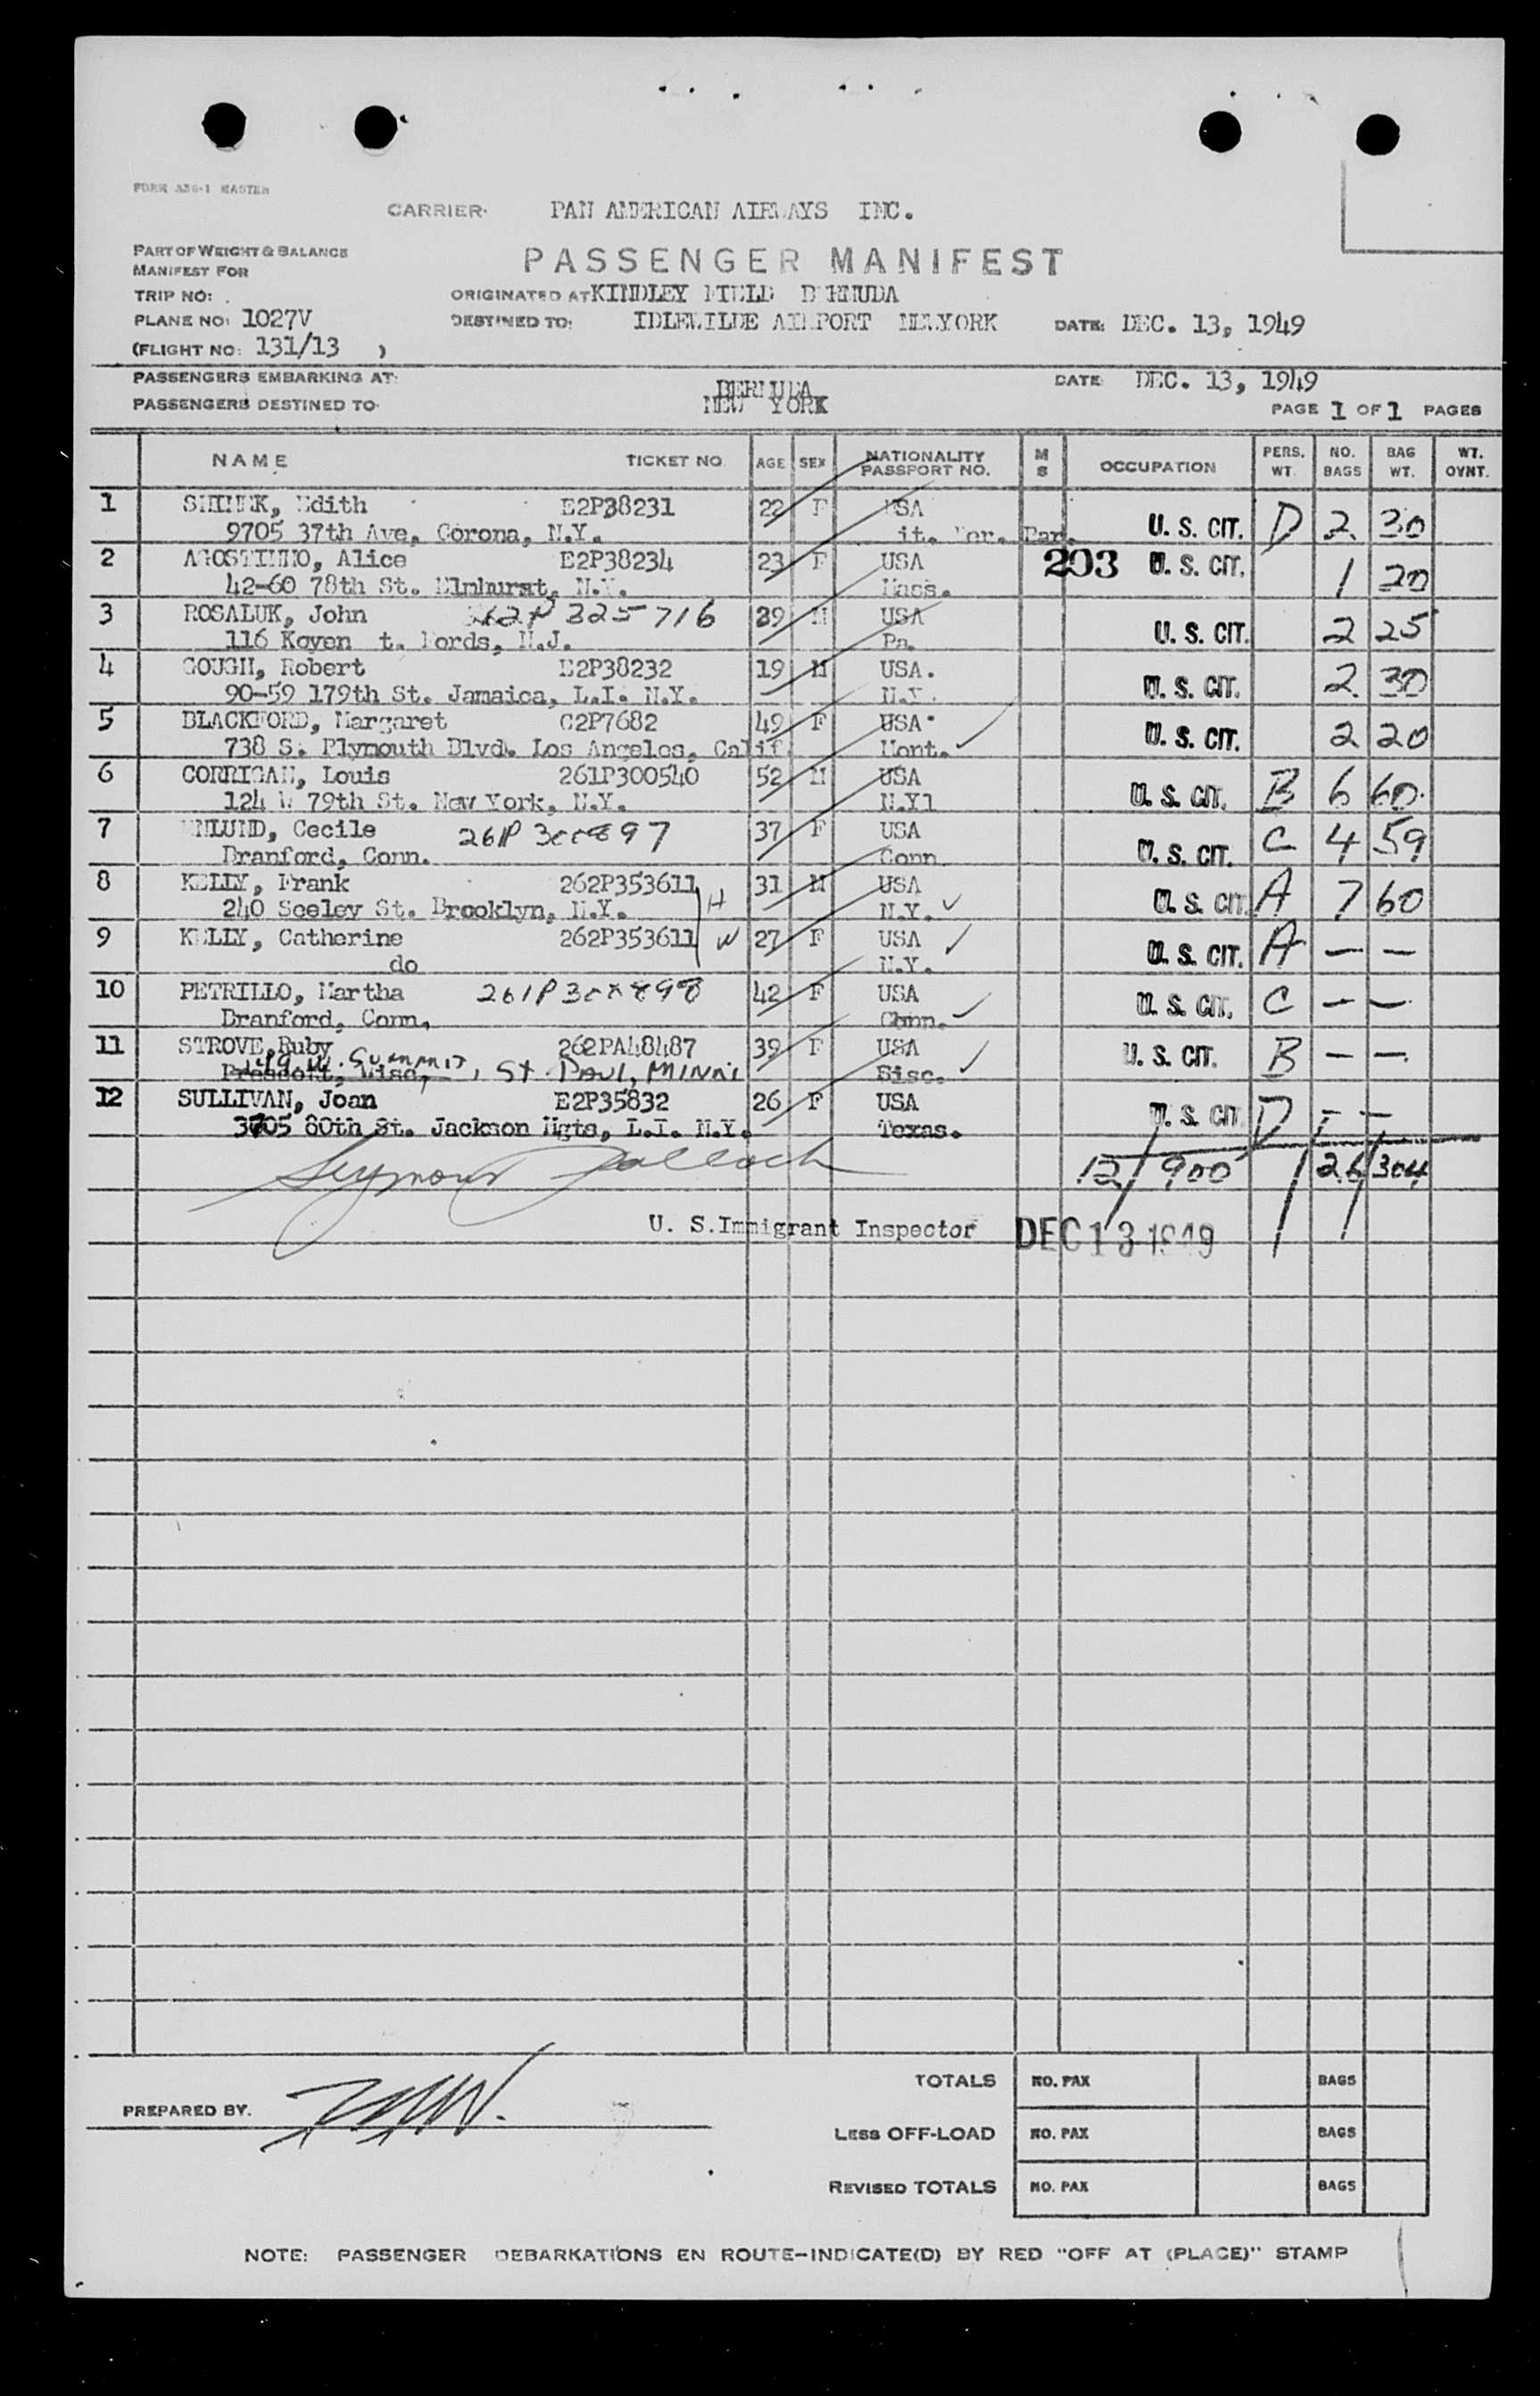 FORM 336-1 MASTER
CARRIER: PAN AMERICAN AIRWAYS INC.
PART OF WEIGHT & BALANCE
MANIFEST FOR
PASSENGER MANIFEST
TRIP NO:
ORIGINATED AT KINDLEY FIELD BERMUDA
PLANE NO: 1027V
DESTINED TO: IDLEWILDE AIRPORT NEWYORK DATE: DEC. 13, 1949
(FLIGHT NO: 131/13 )
PASSENGERS EMBARKING AT: BERMUDA DATE DEC. 13, 1949
PASSENGERS DESTINED TO: NEW YORK
PAGE 1 OF 1 PAGES
NAME TICKET NO. AGE SEX NATIONALITY PASSPORT NO. M S OCCUPATION PERS. WT. NO. BAGS BAG WT. WT. OYNT.
1 Edith E2P38231 22 F USA U. S. CIT. D 2 30
9705 37th Ave, Corona, N.Y.
2 AGOSTINHO, Alice E2P38234 23 F USA 203 U. S. CIT. 1 20
42-60 78th St. Elmhurst, N.Y. Mass.
3 ROSALUK, John 262P 325716 39 M USA U. S. CIT. 2 25
116 Koyen t. Fords, N.J. Pa.
4 GOUGH, Robert E2P38232 19 M USA. U. S. CIT. 2 30
90-59 179th St. Jamaica, L.I. N.Y. N.Y.
5 BLACKFORD, Margaret C2P7682 49 F USA. U. S. CIT. 2 20
738 S. Plymouth Blvd. Los Angeles, Calif. Mont. ✓
6 CORRIGAN, Louis 261P300540 52 M USA U. S. CIT. B 6 60
124 W 79th St. New York, N.Y. N.Y1
7 ENLUND, Cecile 261P 300897 37 F USA U. S. CIT. C 4 59
Branford, Conn. Conn
8 KELLY, Frank 262P353611 H 31 M USA U. S. CIT A 7 60
240 Seeley St. Brooklyn, N.Y. N.Y. ✓
9 KELLY, Catherine 262P353611 W 27 F USA ✓ U. S. CIT. A — —
do N.Y.
10 PETRILLO, Martha 261P 300898 42 F USA U. S. CIT. C — —
Branford, Conn, Conn. ✓
11 STROVE, Ruby 262PA48487 39 F USA U. S. CIT. B — —
149 W. Summit, St. Paul, MINN
Prescott, Wisc, Sisc. ✓
12 SULLIVAN, Joan E2P35832 26 F USA U. S. CIT D — —
3705 80th St. Jackson Hgts, L.I. N.Y. Texas.
Seymour Pollack 12/ 900 / 26/304
U. S.Immigrant Inspector DEC 13 1949
TOTALS NO. PAX BAGS
PREPARED BY.
LESS OFF-LOAD NO. PAX BAGS
REVISED TOTALS NO. PAX BAGS
NOTE: PASSENGER DEBARKATIONS EN ROUTE-INDICATE(D) BY RED "OFF AT (PLACE)" STAMP